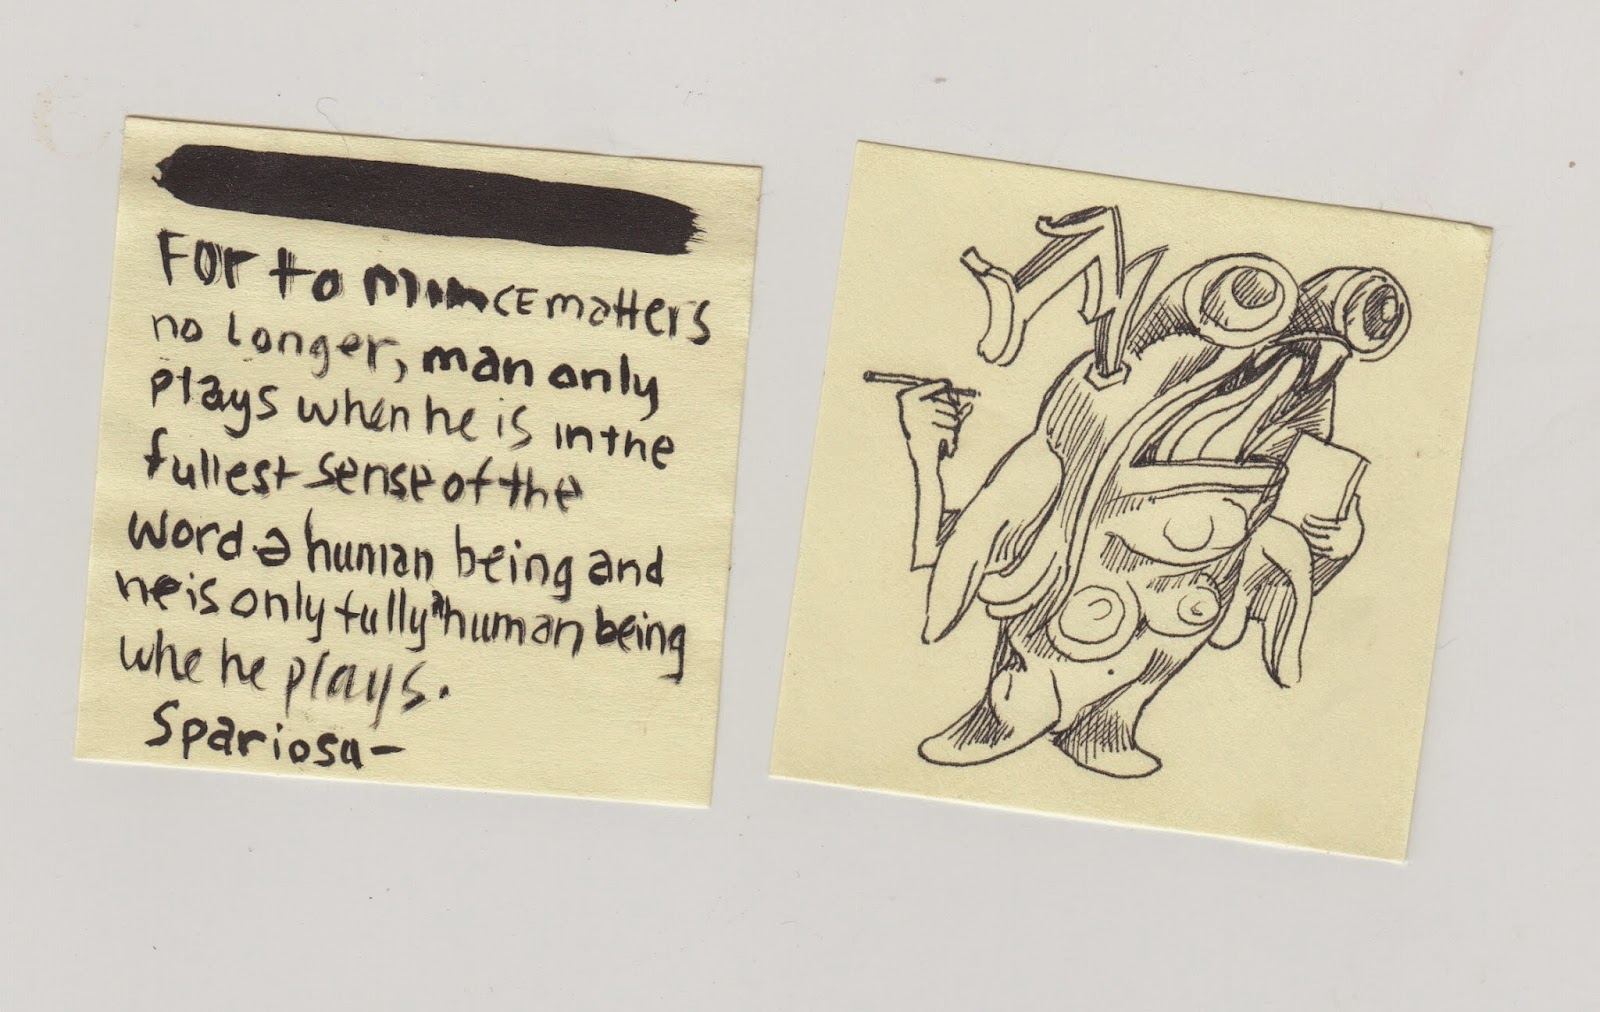 For to mince matters
no longer, man only
plays when he is in the
fullest sense of the
word a human being and
he is only fully a human being
whe he plays.
Spariosu-